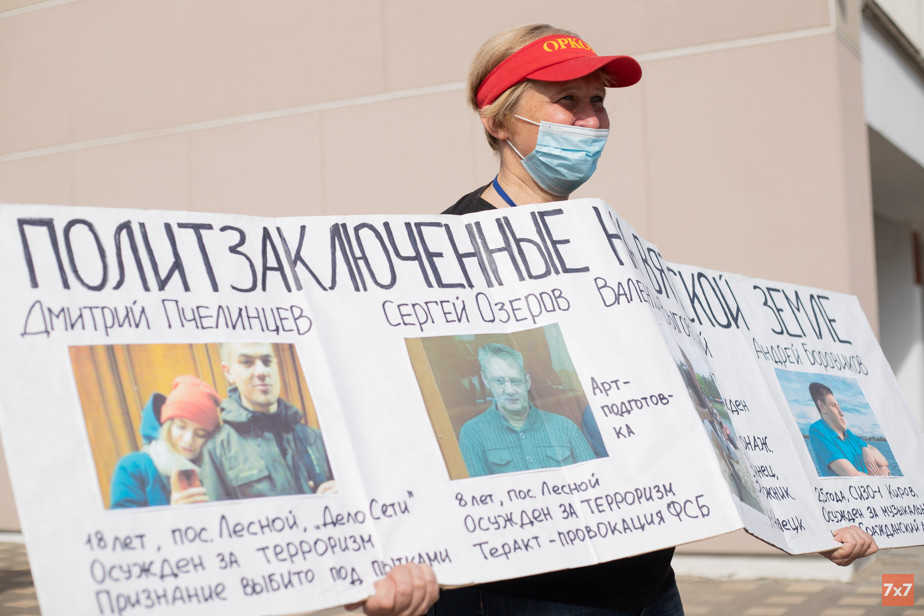 ОРКО
ПОЛИТЗАКЛЮЧЕННЫЕ НА ВЯТСКОЙ ЗЕМЛЕ
Дмитрий Пчелинцев
18 лет, пос. Лесной, „Дело Сети"
Осужден за терроризм
Признание выбито под пытками
Сергей Озеров
Арт-
подготов-
ка
8 лет, пос. Лесной
Осужден за терроризм
Теракт-провокация ФСБ
Андрей Боровиков
СИЗО-1 Киров
Осужден за
7x7